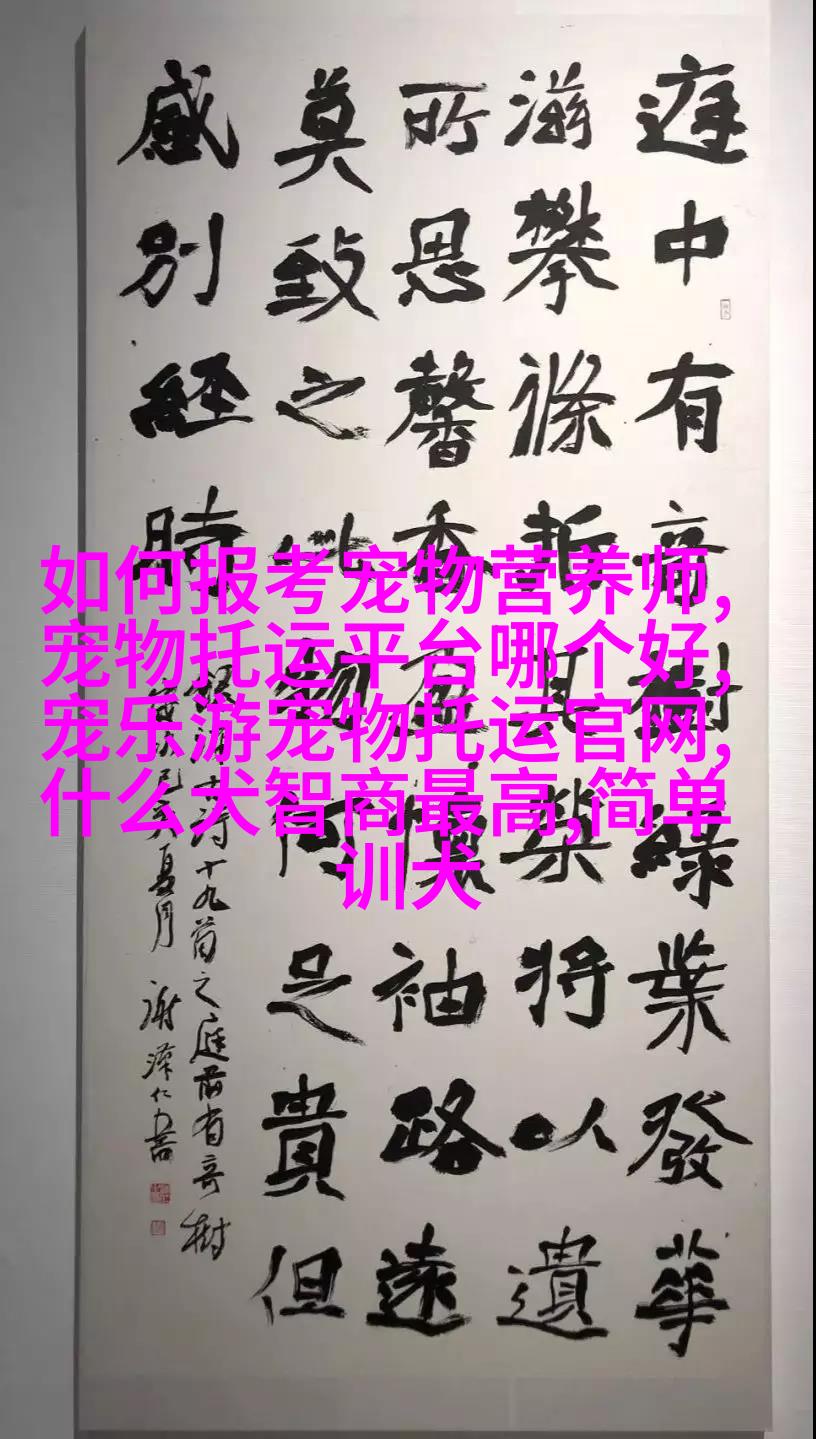 庭中有奇樹綠葉發華
滋攀條折其榮將以遺
所思馨香盈懷袖路遠
莫致之此物何足貴但
感別經時
十九首之庭前有奇樹
己亥夏月 謝澤仁書
如何报考宠物营养师,
宠物托运平台哪个好,
宠乐游宠物托运官网,
什么犬智商最高,简单
训犬